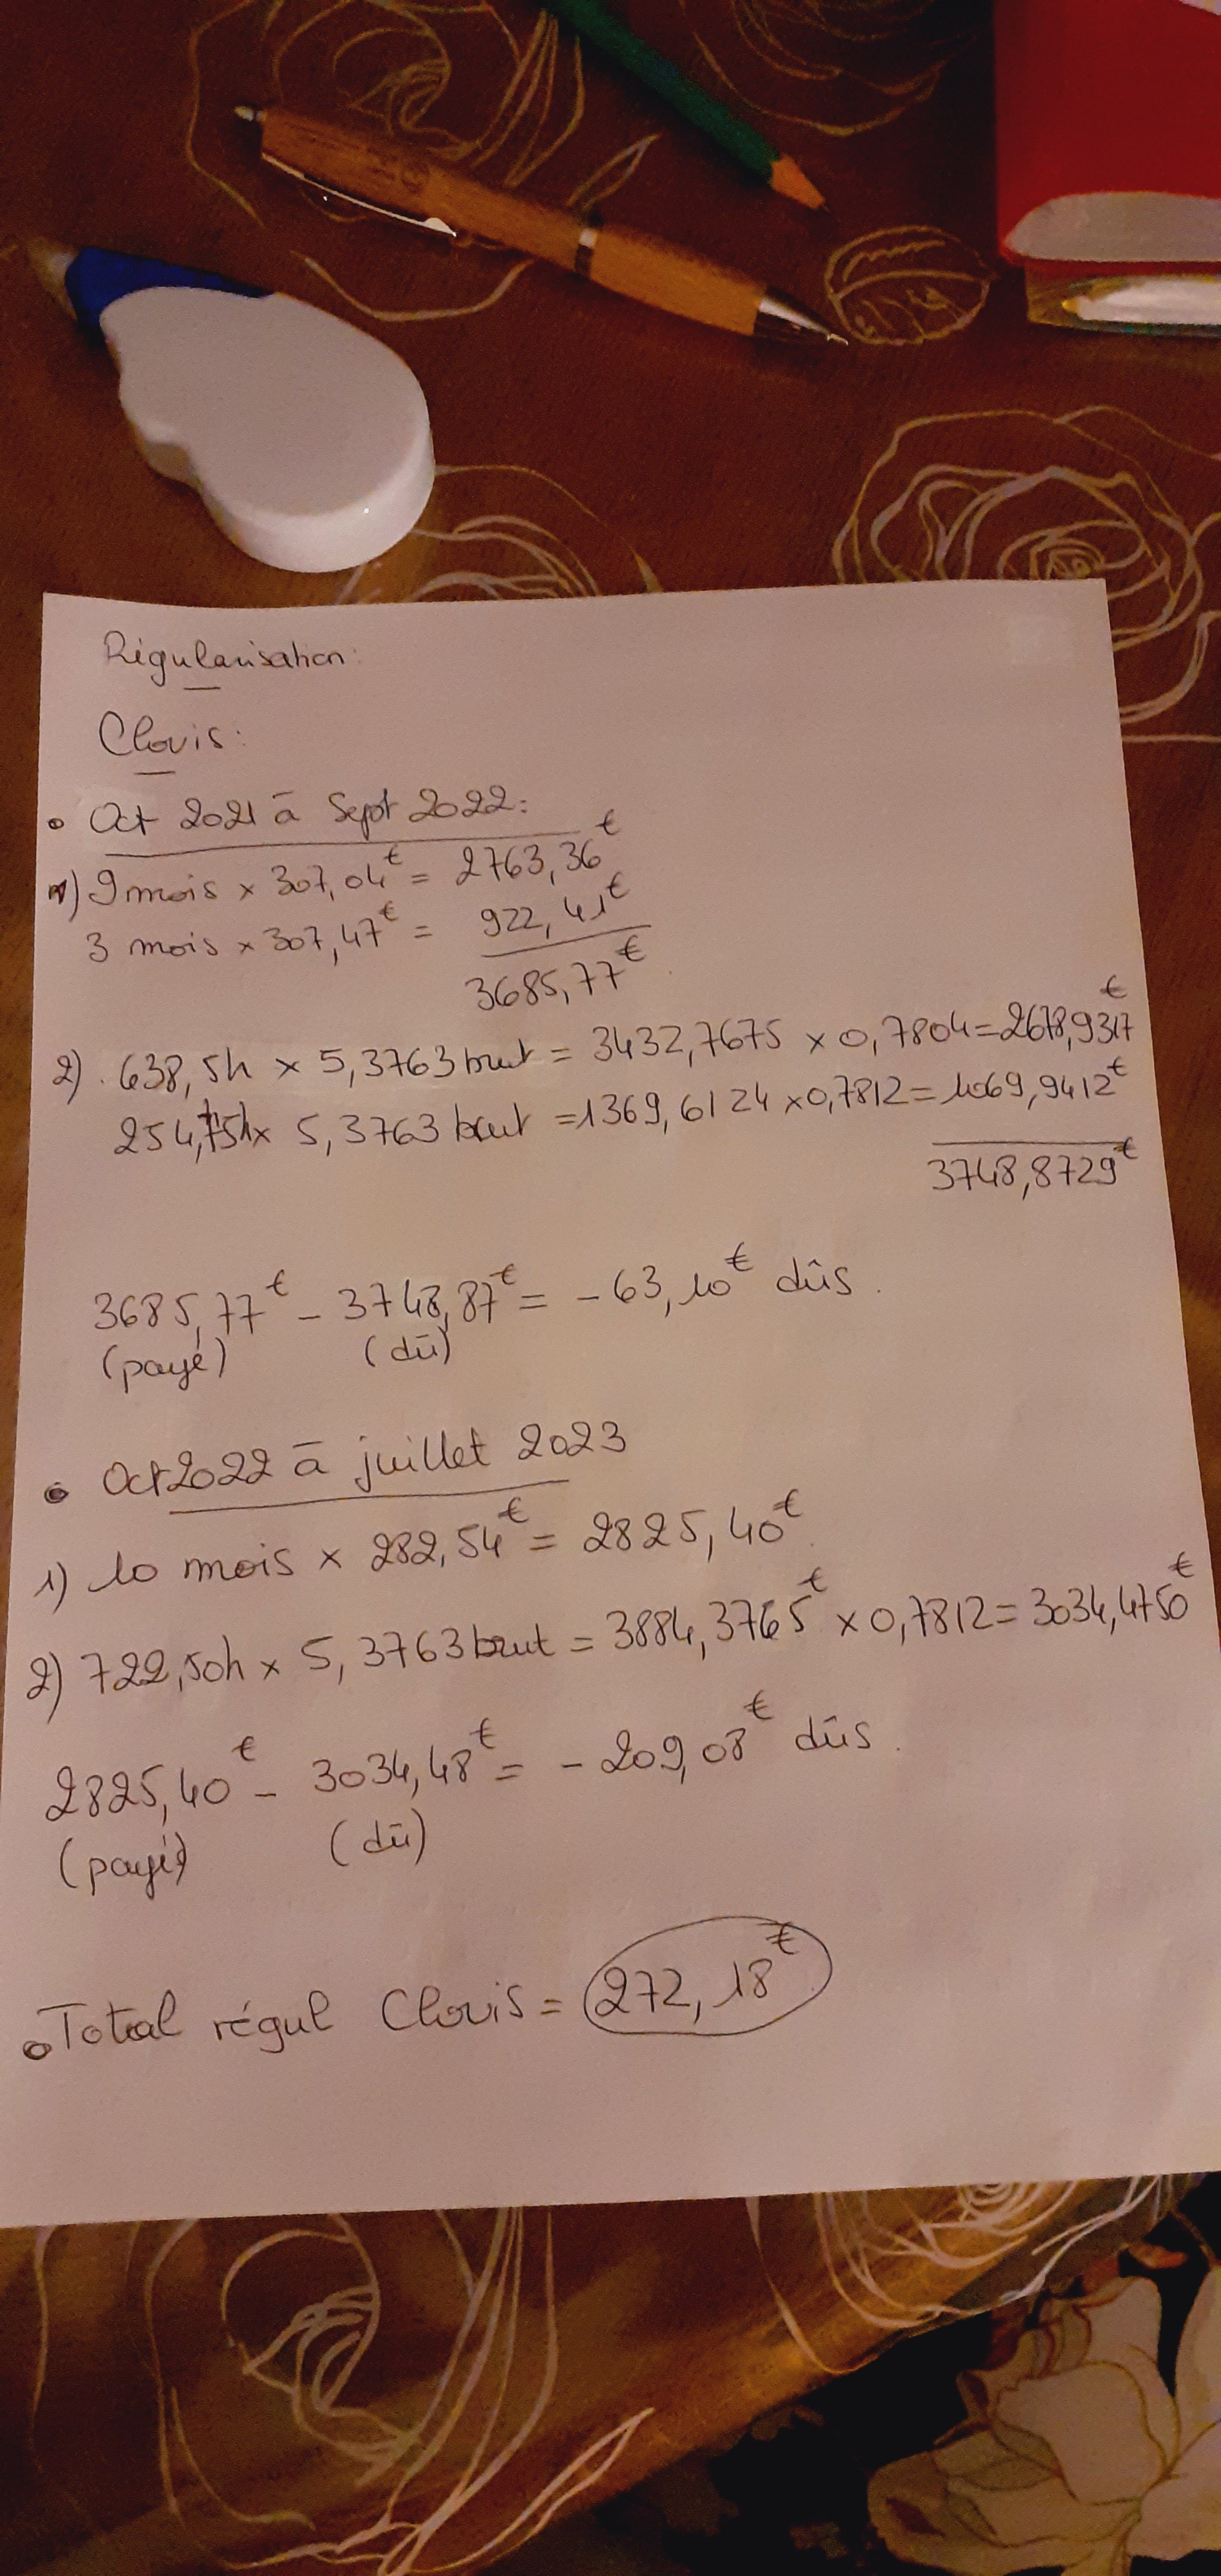 Régularisation:
Clovis:
• Oct 2021 à Sept 2022:
1) 9 mois × 307,04€ = 2763,36€
3 mois × 307,47€ = 922,41€
3685,77€
2) 638,5h × 5,3763 brut = 3432,7675 × 0,7804 = 2678,9317€
254,75h × 5,3763 brut = 1369,6124 × 0,7812 = 1069,9412€
3748,8729€
3685,77€ - 3748,87€ = - 63,10€ dûs.
(payé) (dû)
• Oct 2022 à juillet 2023
1) 10 mois × 282,54€ = 2825,40€
2) 722,50h × 5,3763 brut = 3884,3765€ × 0,7812 = 3034,4750€
2825,40€ - 3034,48€ = - 209,08€ dûs.
(payé) (dû)
• Total régul Clovis = 272,18€